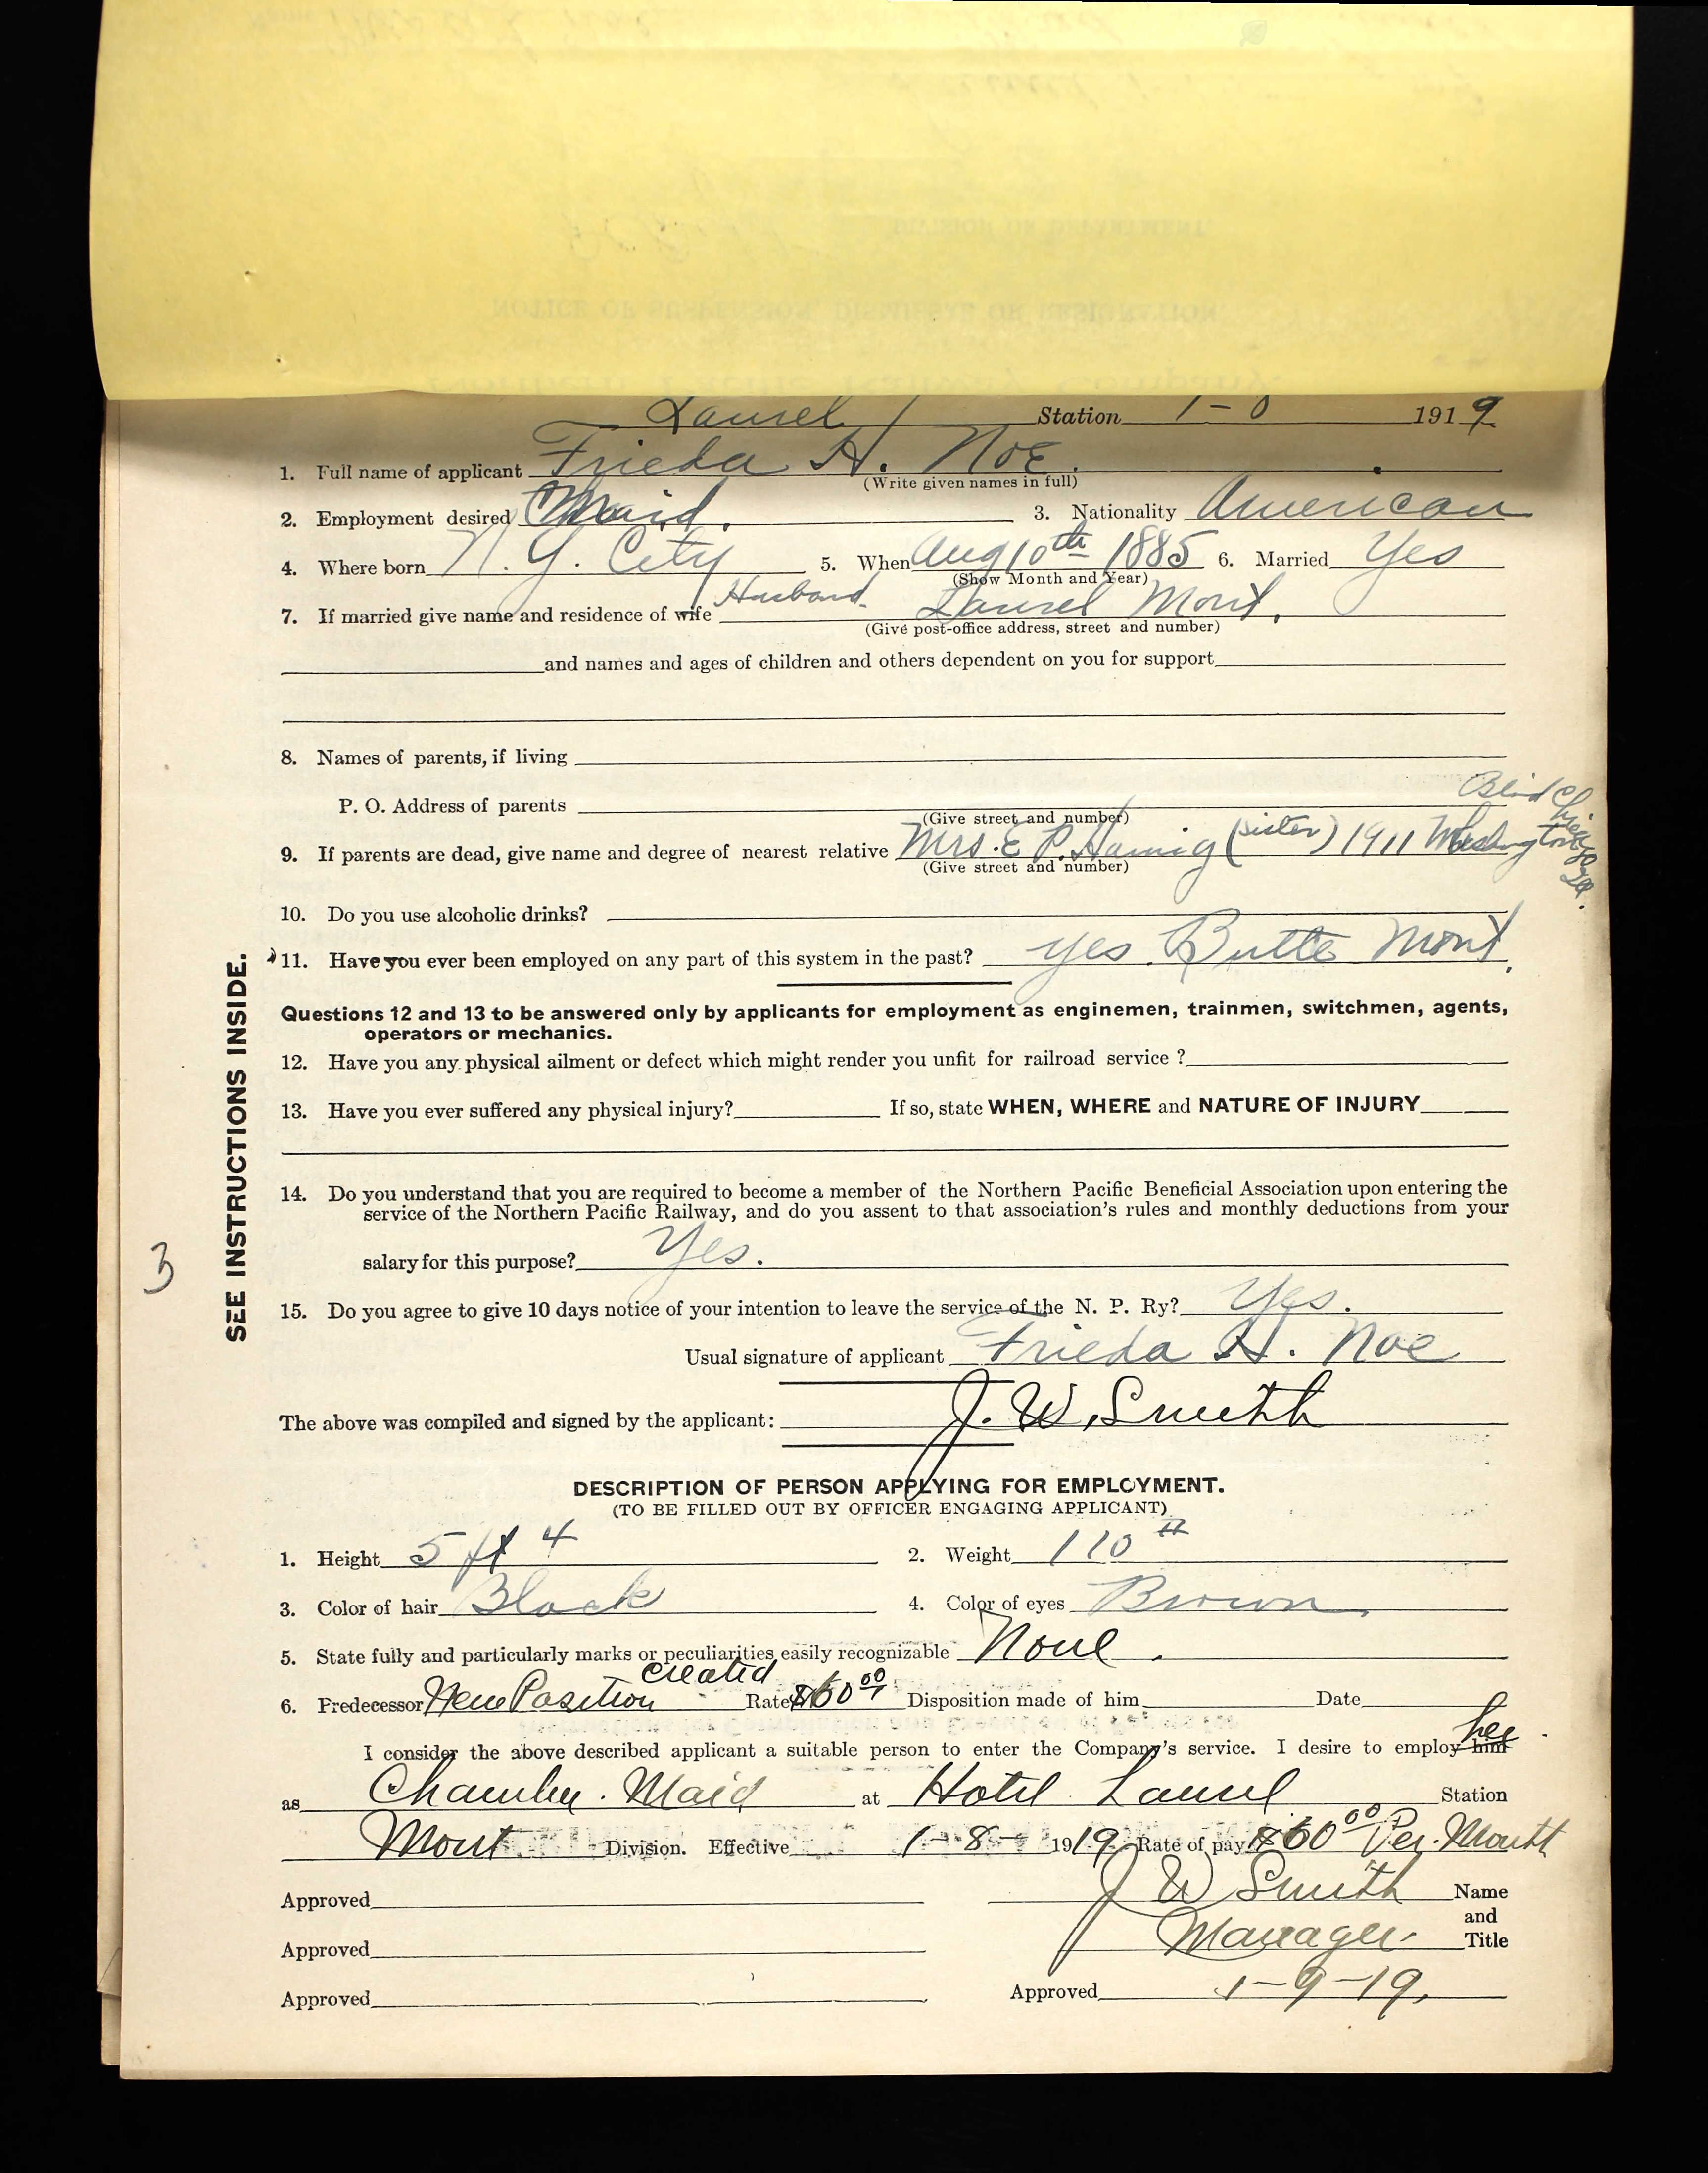 Laurel Station 1-8 1919.
1. Full name of applicant Frieda H. Noe.
(Write given names in full)
2. Employment desired Maid. 3. Nationality American
4. Where born N. Y. City 5. When Aug 10th 1885 6. Married Yes
(Show Month and Year)
7. If married give name and residence of wife Husband. Laurel Mont.
(Give post-office address, street and number)
and names and ages of children and others dependent on you for support
8. Names of parents, if living
P. O. Address of parents
(Give street and number)
9. If parents are dead, give name and degree of nearest relative Mrs. E. P. (sister) 1911 Washington Blvd Chicago Ill.
(Give street and number)
10. Do you use alcoholic drinks?
11. Have you ever been employed on any part of this system in the past? yes. Butte Mont.
Questions 12 and 13 to be answered only by applicants for employment as enginemen, trainmen, switchmen, agents,
operators or mechanics.
12. Have you any physical ailment or defect which might render you unfit for railroad service ?
13. Have you ever suffered any physical injury? If so, state WHEN, WHERE and NATURE OF INJURY
SEE INSTRUCTIONS INSIDE.
3
14. Do you understand that you are required to become a member of the Northern Pacific Beneficial Association upon entering the
service of the Northern Pacific Railway, and do you assent to that association's rules and monthly deductions from your
salary for this purpose? Yes.
15. Do you agree to give 10 days notice of your intention to leave the service of the N. P. Ry? Yes.
Usual signature of applicant Frieda H. Noe
The above was compiled and signed by the applicant: J. W. Smith
DESCRIPTION OF PERSON APPLYING FOR EMPLOYMENT.
(TO BE FILLED OUT BY OFFICER ENGAGING APPLICANT)
1. Height 5 ft 4 2. Weight 110 #
3. Color of hair Black 4. Color of eyes Brown
5. State fully and particularly marks or peculiarities easily recognizable None.
6. Predecessor New Position created Rate $60 00 Disposition made of him Date
I consider the above described applicant a suitable person to enter the Company's service. I desire to employ him her
as Chamber. Maid at Hotel Laurel Station
Mont Division. Effective 1-8- 1919 Rate of pay $60 00 Per. Month
Approved J W Smith Name
and
Approved Manager. Title
Approved Approved 1-9-19.